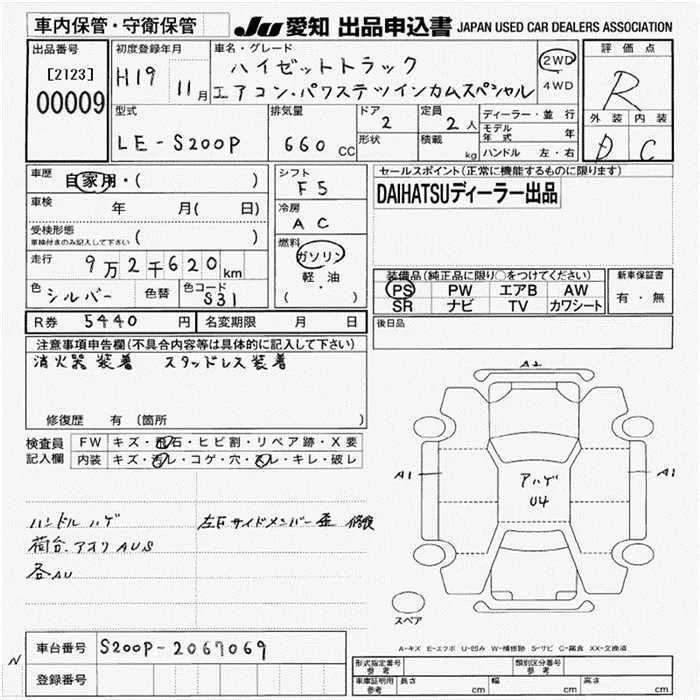 車内保管・守衛保管
JU 愛知 出品申込書 JAPAN USED CAR DEALERS ASSOCIATION
出品番号
[2123]
00009
初度登録年月
H19 11月
車名・グレード
ハイゼットトラック
エアコン・パワステツインカムスペシャル
2WD
4WD
評価点
R
外装 内装
D C
型式
LE-S200P
排気量
660 CC
ドア
2
形状
定員
2人
積載
kg
ディーラー・並行
モデル年式 年
ハンドル 左・右
車歴
自家用・( )
車検 年 月( 日)
受検形態
車検付きのみ記入して下さい ( )
走行 9万2千620km
色 シルバー 色替 色コード S31
シフト
F5
冷房
AC
燃料
ガソリン
・
軽・油
( )
セールスポイント(正常に機能するものに限ります)
DAIHATSUディーラー出品
装備品(純正品に限り○をつけてください)
PS PW エアB AW
SR ナビ TV カワシート
新車保証書
有・無
後日品
R券 5440 円 名変期限 月 日
注意事項申告欄(不具合内容等は具体的に記入して下さい)
消火器装着 スタッドレス装着
修復歴 有 (箇所 )
検査員
記入欄
FW キズ・飛石・ヒビ割・リペア跡・X要
内装 キズ・汚レ・コゲ・穴・スレ・キレ・破レ
ハンドルハゲ
左Fサイドメンバー歪 修復
荷台.アオリAUS
各AU
A2
A1
A1
アハゲ
U4
スペア
A-キズ E-エクボ U-凹み W-補修跡 S-サビ C-腐食 XX-交換済
N
車台番号 S200P-2067069
登録番号
形式指定番号
参考
類別区分番号
参考
車庫証明用
参考
長さ cm 幅 cm 高さ cm